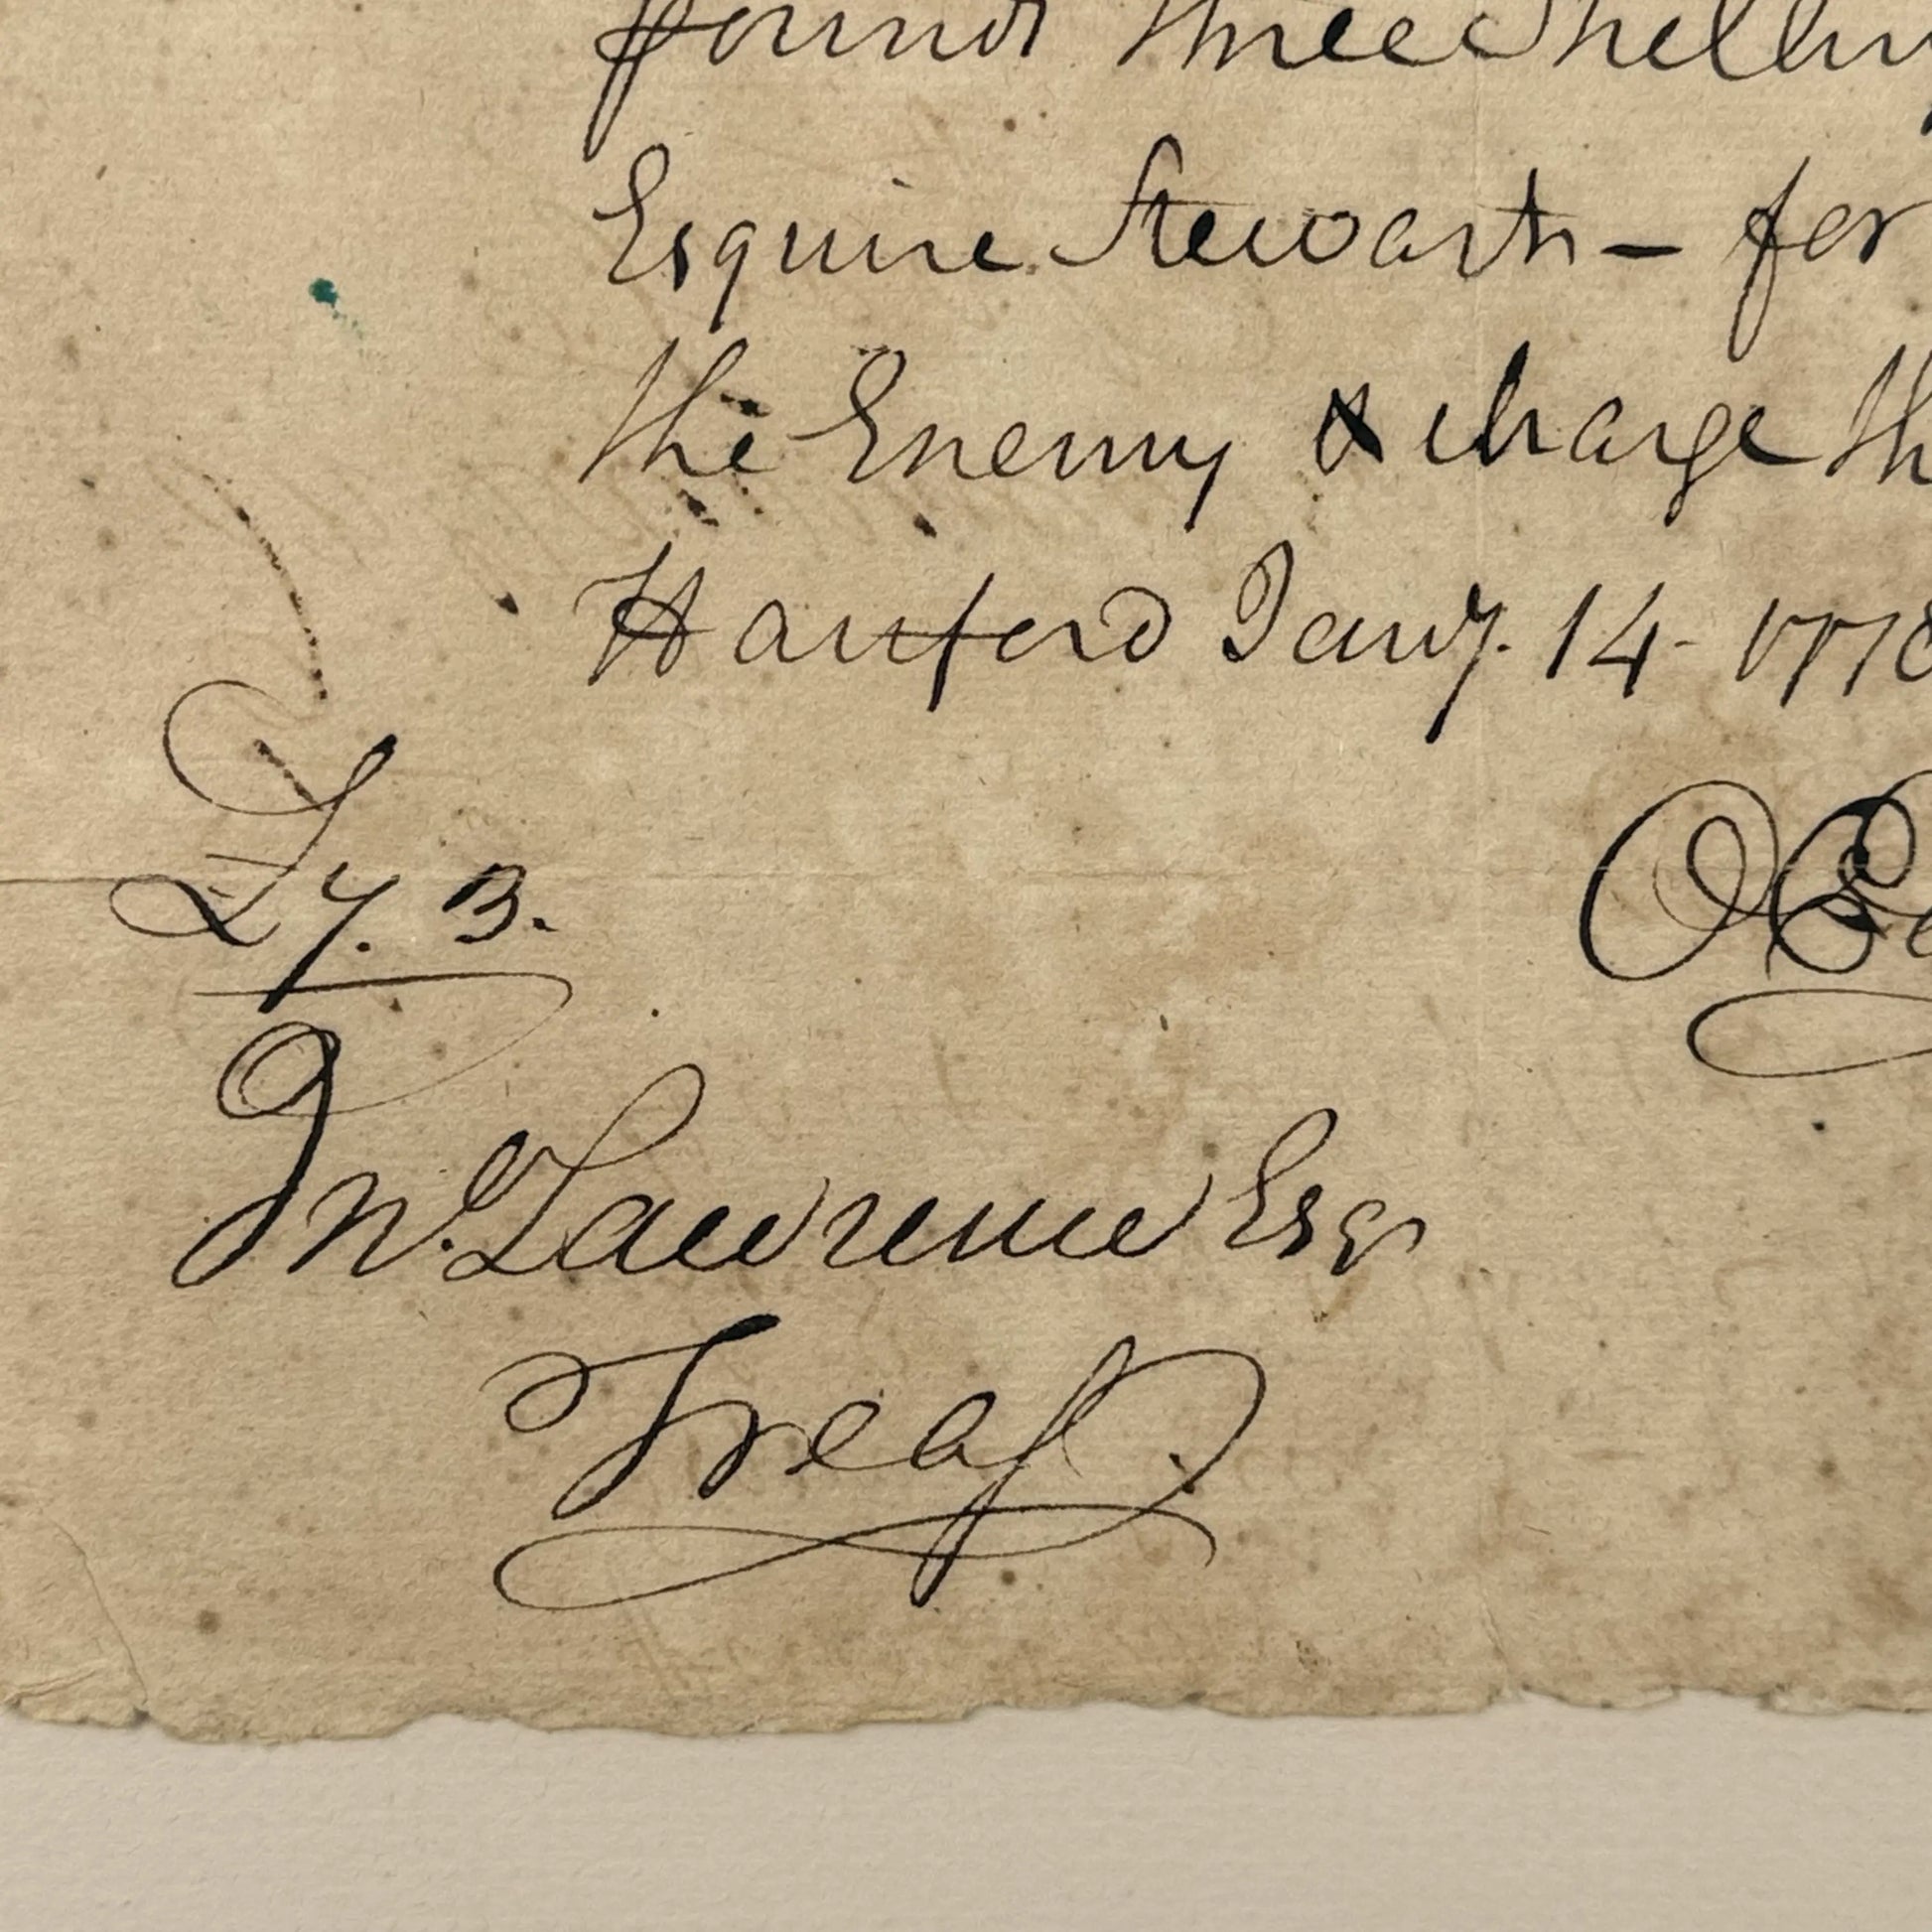 pound three Shelling
Esquire Stewart – for
the Enemy & charge th
Hartford Jany. 14 - 1778
O E
£7. 3.
Jno. Lawrence Esqr
Treasr.